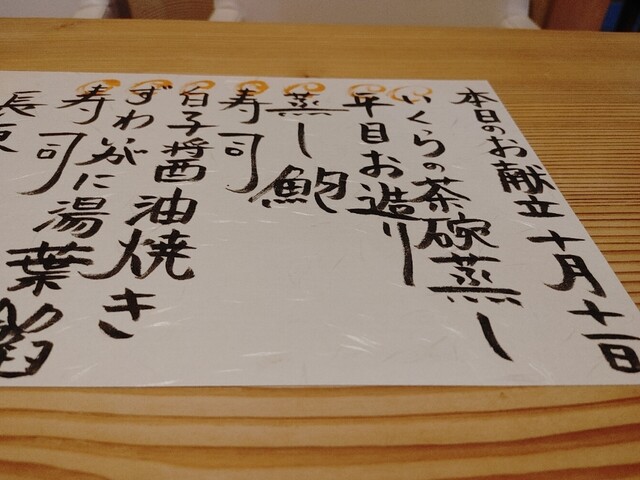 本日のお献立 十月十一日
いくらの茶碗蒸し
平目お造り
蒸し鮑
寿司
白子醤油焼き
ずわいがに湯葉餡
寿司